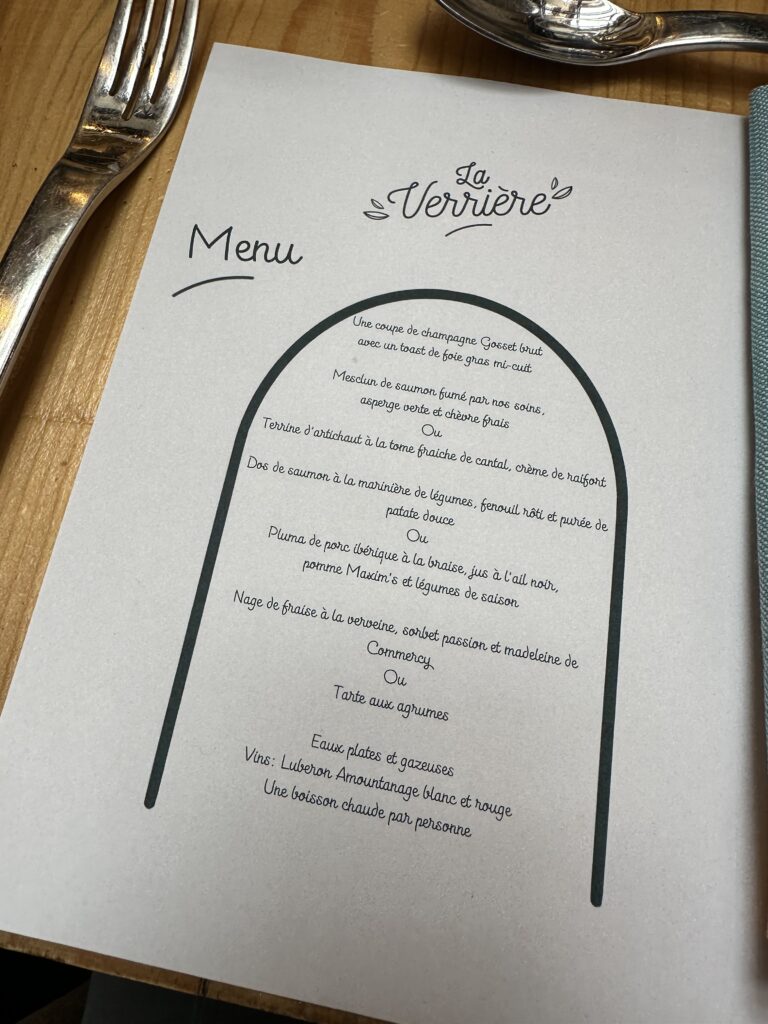 La
Verrière
Menu
Une coupe de champagne Gosset brut
avec un toast de foie gras mi-cuit
Mesclun de saumon fumé par nos soins,
asperge verte et chèvre frais
Ou
Terrine d'artichaut à la tome fraiche de cantal, crème de raifort
Dos de saumon à la marinière de légumes, fenouil rôti et purée de
patate douce
Ou
Pluma de porc ibérique à la braise, jus à l'ail noir,
pomme Maxim's et légumes de saison
Nage de fraise à la verveine, sorbet passion et madeleine de
Commercy
Ou
Tarte aux agrumes
Eaux plates et gazeuses
Vins: Luberon Amountanage blanc et rouge
Une boisson chaude par personne